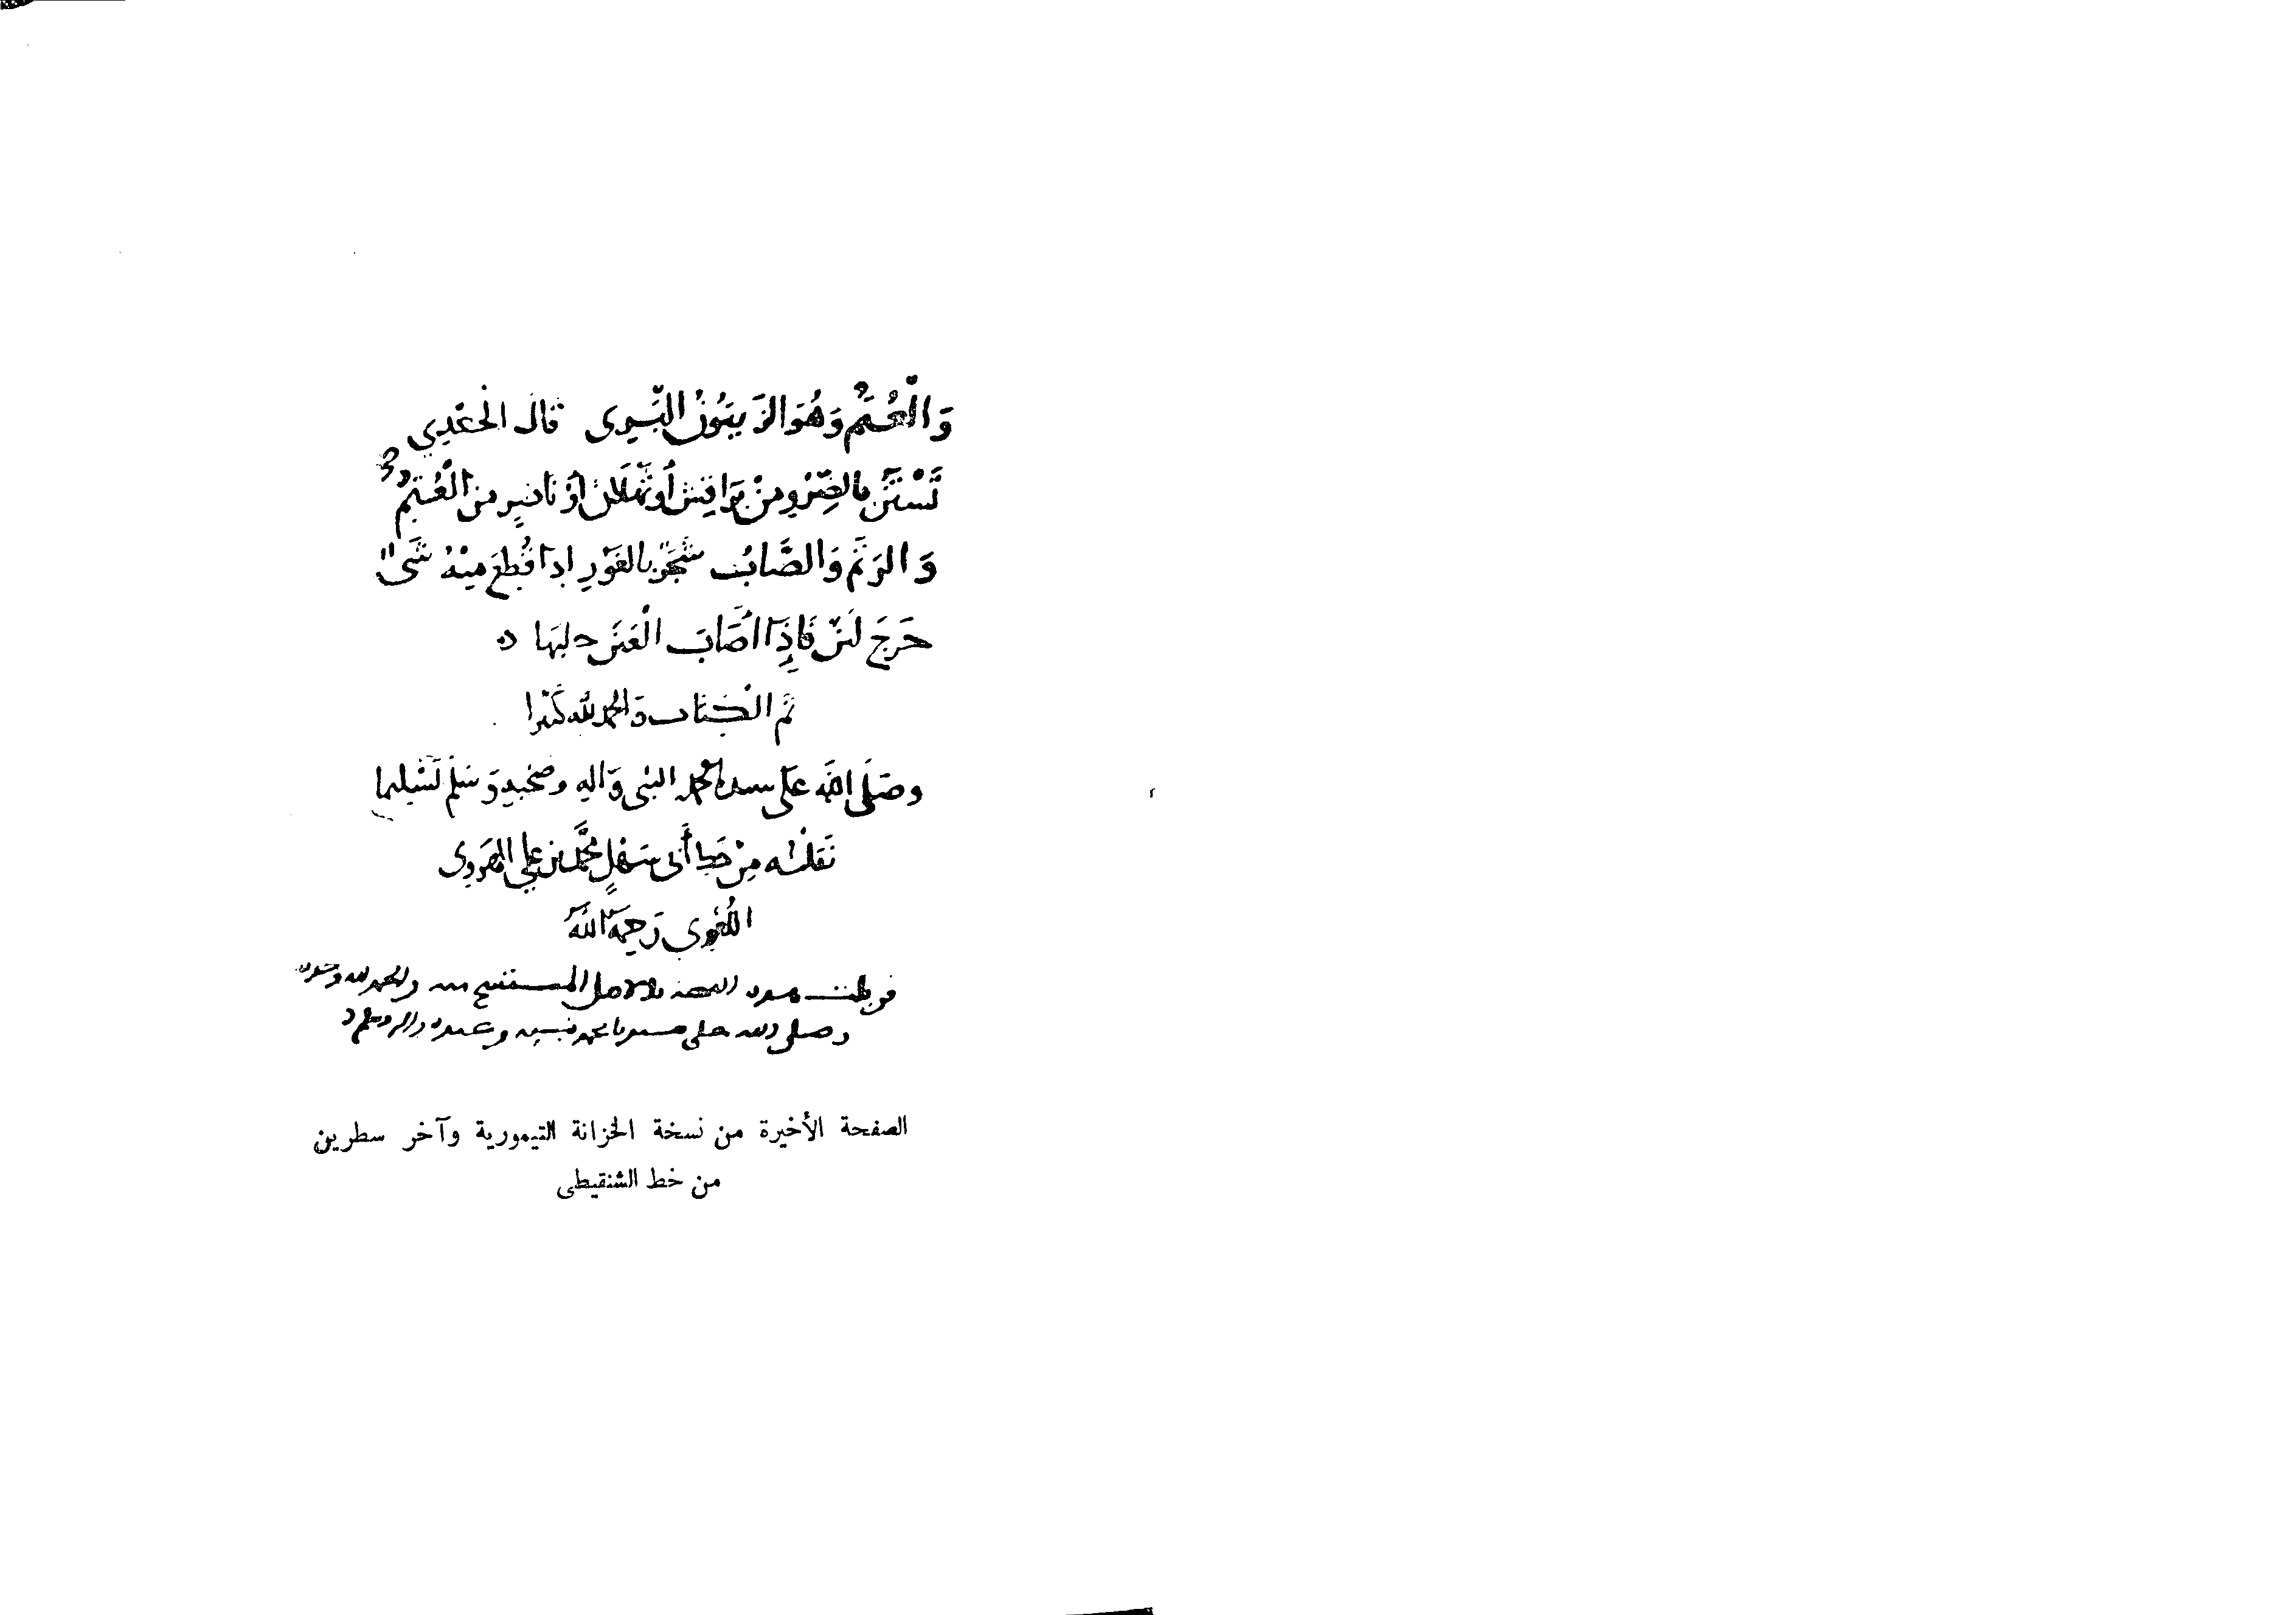 وَالْعُتُمُ وَهُوَ الزَّيتُونُ البَّرِى قال الجَعْدِي
تَسْتَنُّ بِالضِّرْوِ مِنْ بَرَاقِش أَوْ هَيْلَان أَوْ نَاضِرٍ مِنَ الْعُتُمُ
وَ الرَتَم وَالصَّابُ شَجَرٌ بالغَوْرِ إذا قُطِعَ مِنْهُ شَىْءٌ
خَرَجَ لَبَنٌ فَإِذَا أَصَابَ الْعَيْنَ حلبها
تَمَّ الكِتَاب وَالحمد لله كَثيرا
وصَلَّى اللَّه عَلَى سيدنا محمد النبى وَآلِهِ وصَحْبِهِ وَسَلَّم تَسْلِيما
نَقَلْتُه مِنْ خَطِّ أَبى سَهْلٍ مُحَمَّد بن عَلِي الهَرَوِى
اللُّغَوِى رَحِمَهُ اللَّهُ
قوبلت هذه النسخة بالاصل المستنسخ منه والحمد لله وحده
وصلى الله على سيدنا محمد نبيه وعبده وآله وسلم
الصفحة الأخيرة من نسخة الخزانة التيمورية وآخر سطرين
من خط الشنقيطى